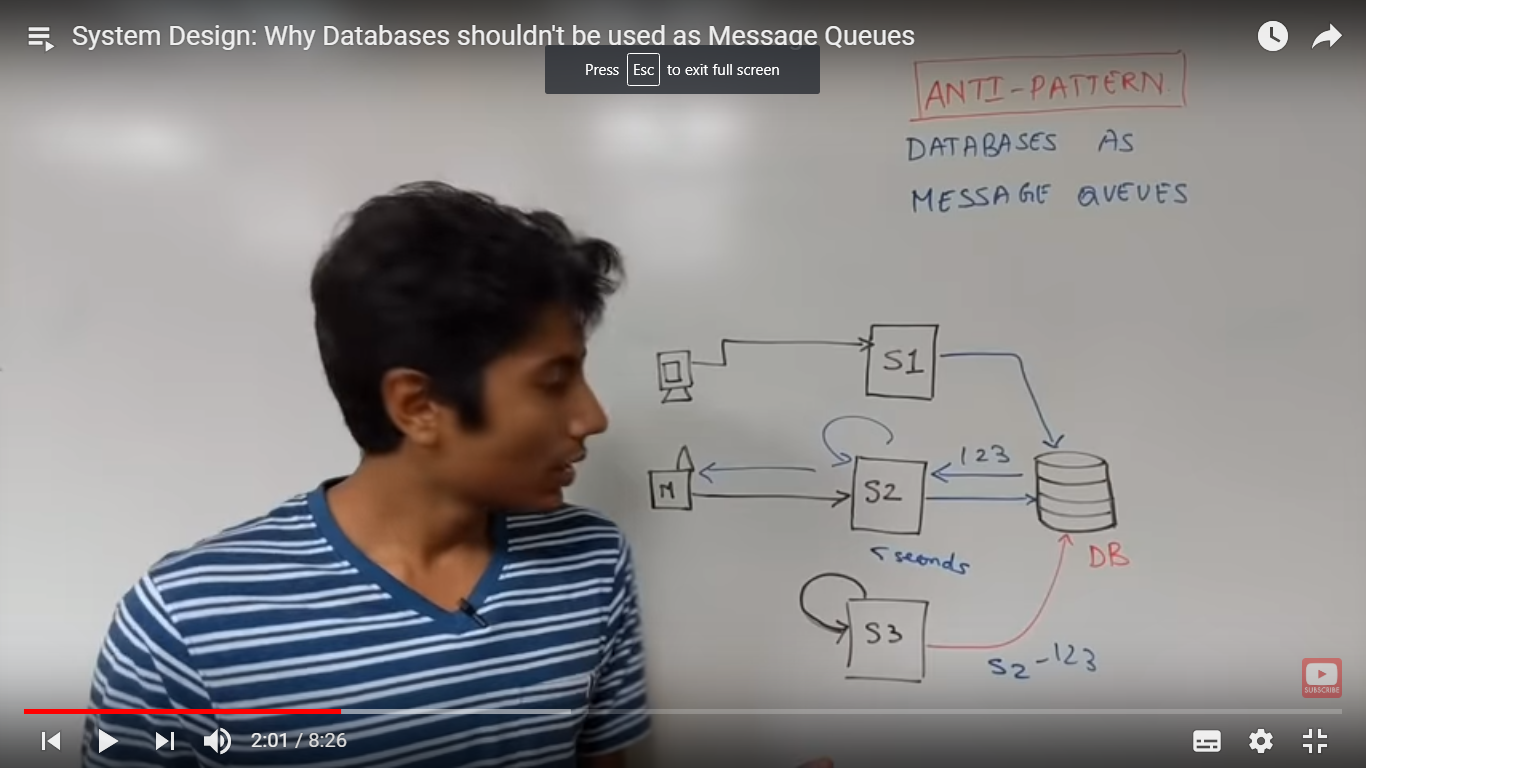 System Design: Why Databases shouldn't be used as Message Queues
Press Esc to exit full screen
ANTI-PATTERN.
DATABASES AS
MESSAGE QUEUES
S1
123
M
S2
5 seconds
DB
S3
S2-123
SUBSCRIBE
2:01 / 8:26